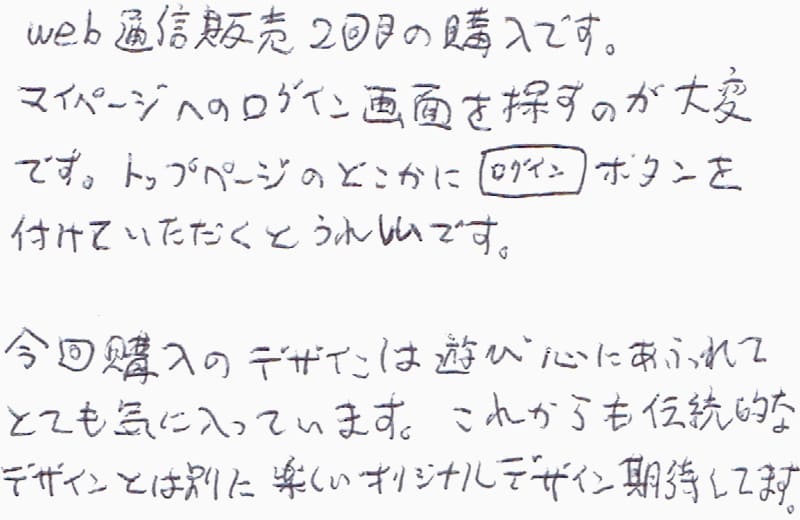 web通信販売2回目の購入です。
マイページへのログイン画面を探すのが大変
です。トップページのどこかにログインボタンを
付けていただくとうれしいです。
今回購入のデザインは遊び心にあふれて
とても気に入っています。これからも伝統的な
デザインとは別に楽しいオリジナルデザイン期待してます。